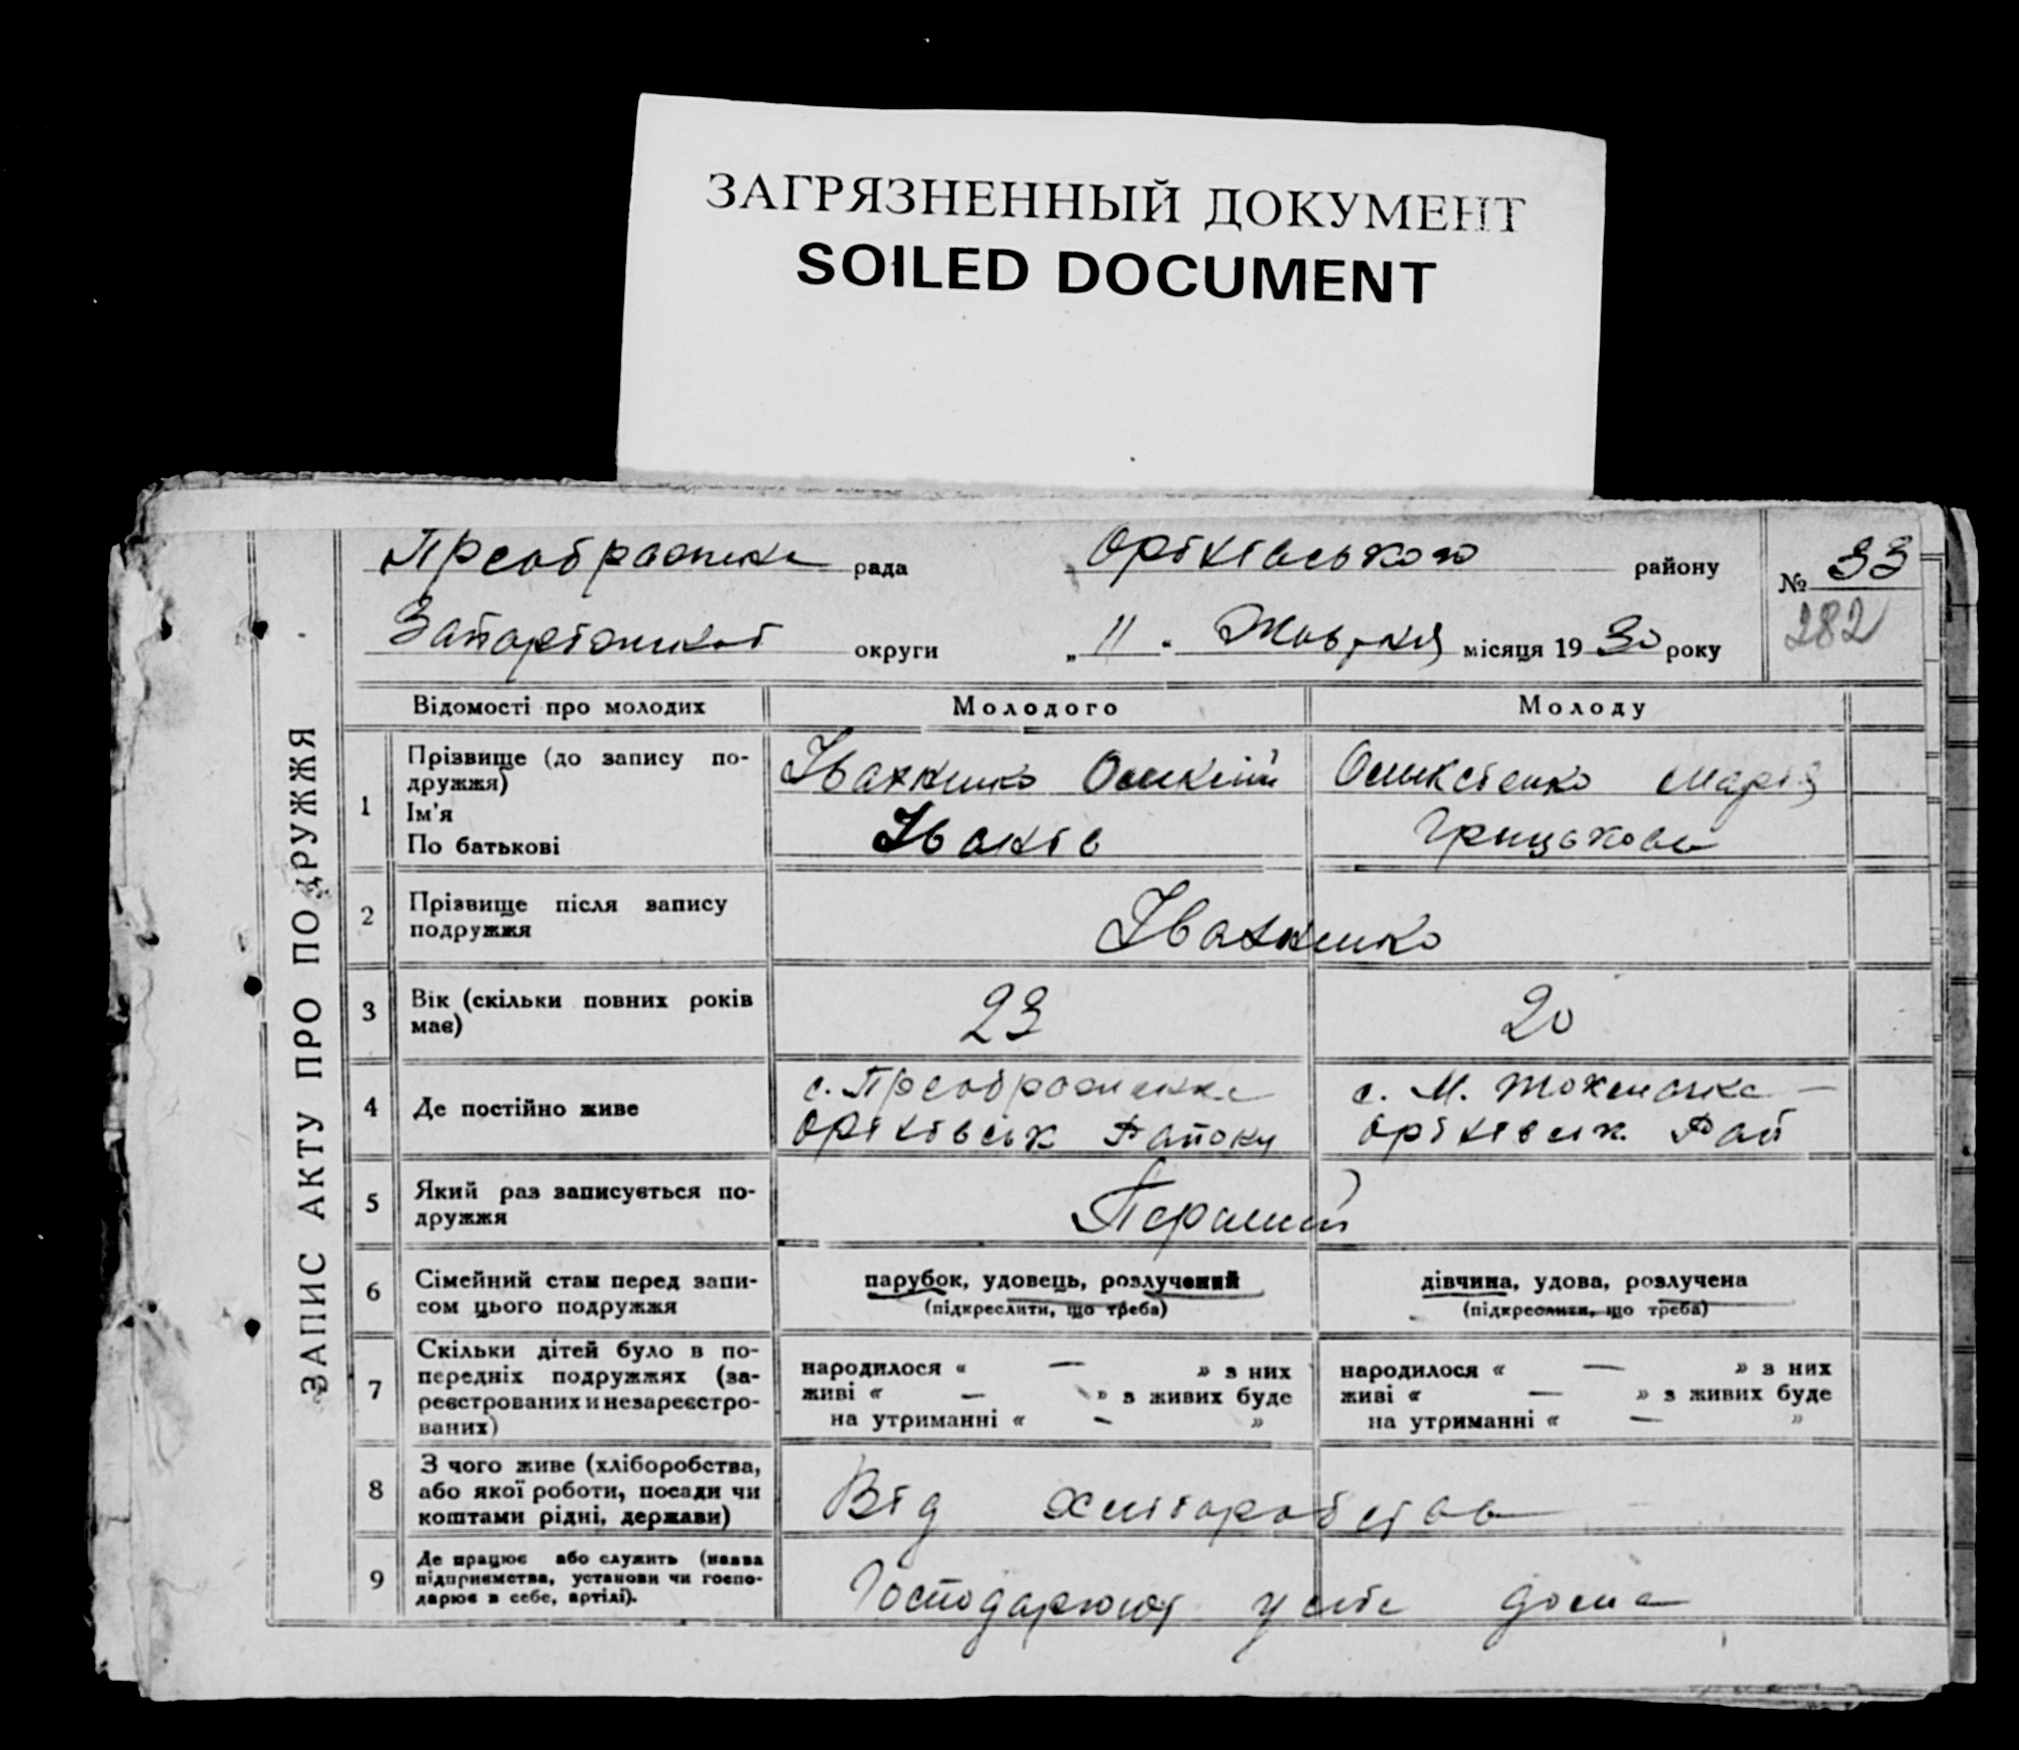 ЗАГРЯЗНЕННЫЙ ДОКУМЕНТ
SOILED DOCUMENT
ЗАПИС АКТУ ПРО ПОДРУЖЖЯ
Преображенка рада Оріхівського району № 33
Запоріжської округи „ 11 “ Жовтня місяця 19 30 року 282
Відомості про молодих Молодого Молоду
1 Прізвище (до запису по-
дружжя)
Ім'я
По батькові
Іваненко Олексій
Іванів
Олексієнко Марія
Грицькова
2 Прізвище після запису
подружжя
Іваненко
3 Вік (скільки повних років
має)
23 20
4 Де постійно живе
с. Преображенка
Оріхівськ Району
с. М. Токмачка
Оріхівськ. Рай
5 Який раз записується по-
дружжя
Перший
6 Сімейний стан перед запи-
сом цього подружжя
парубок, удовець, розлучений
(підкреслити, що треба)
дівчина, удова, розлучена
(підкреслити, що треба)
7 Скільки дітей було в по-
передніх подружжях (за-
реєстрованих и незареєстро-
ваних)
народилося « — » з них
живі « — » з живих буде
на утриманні « — »
народилося « — » з них
живі « — » з живих буде
на утриманні « — »
8 З чого живе (хліборобства,
або якої роботи, посади чи
коштами рідні, держави)
Від хліборобства
9 Де працює або служить (назва
підприємства, установи чи госпо-
дарює в себе, артілі).
Господарюют у себе дома